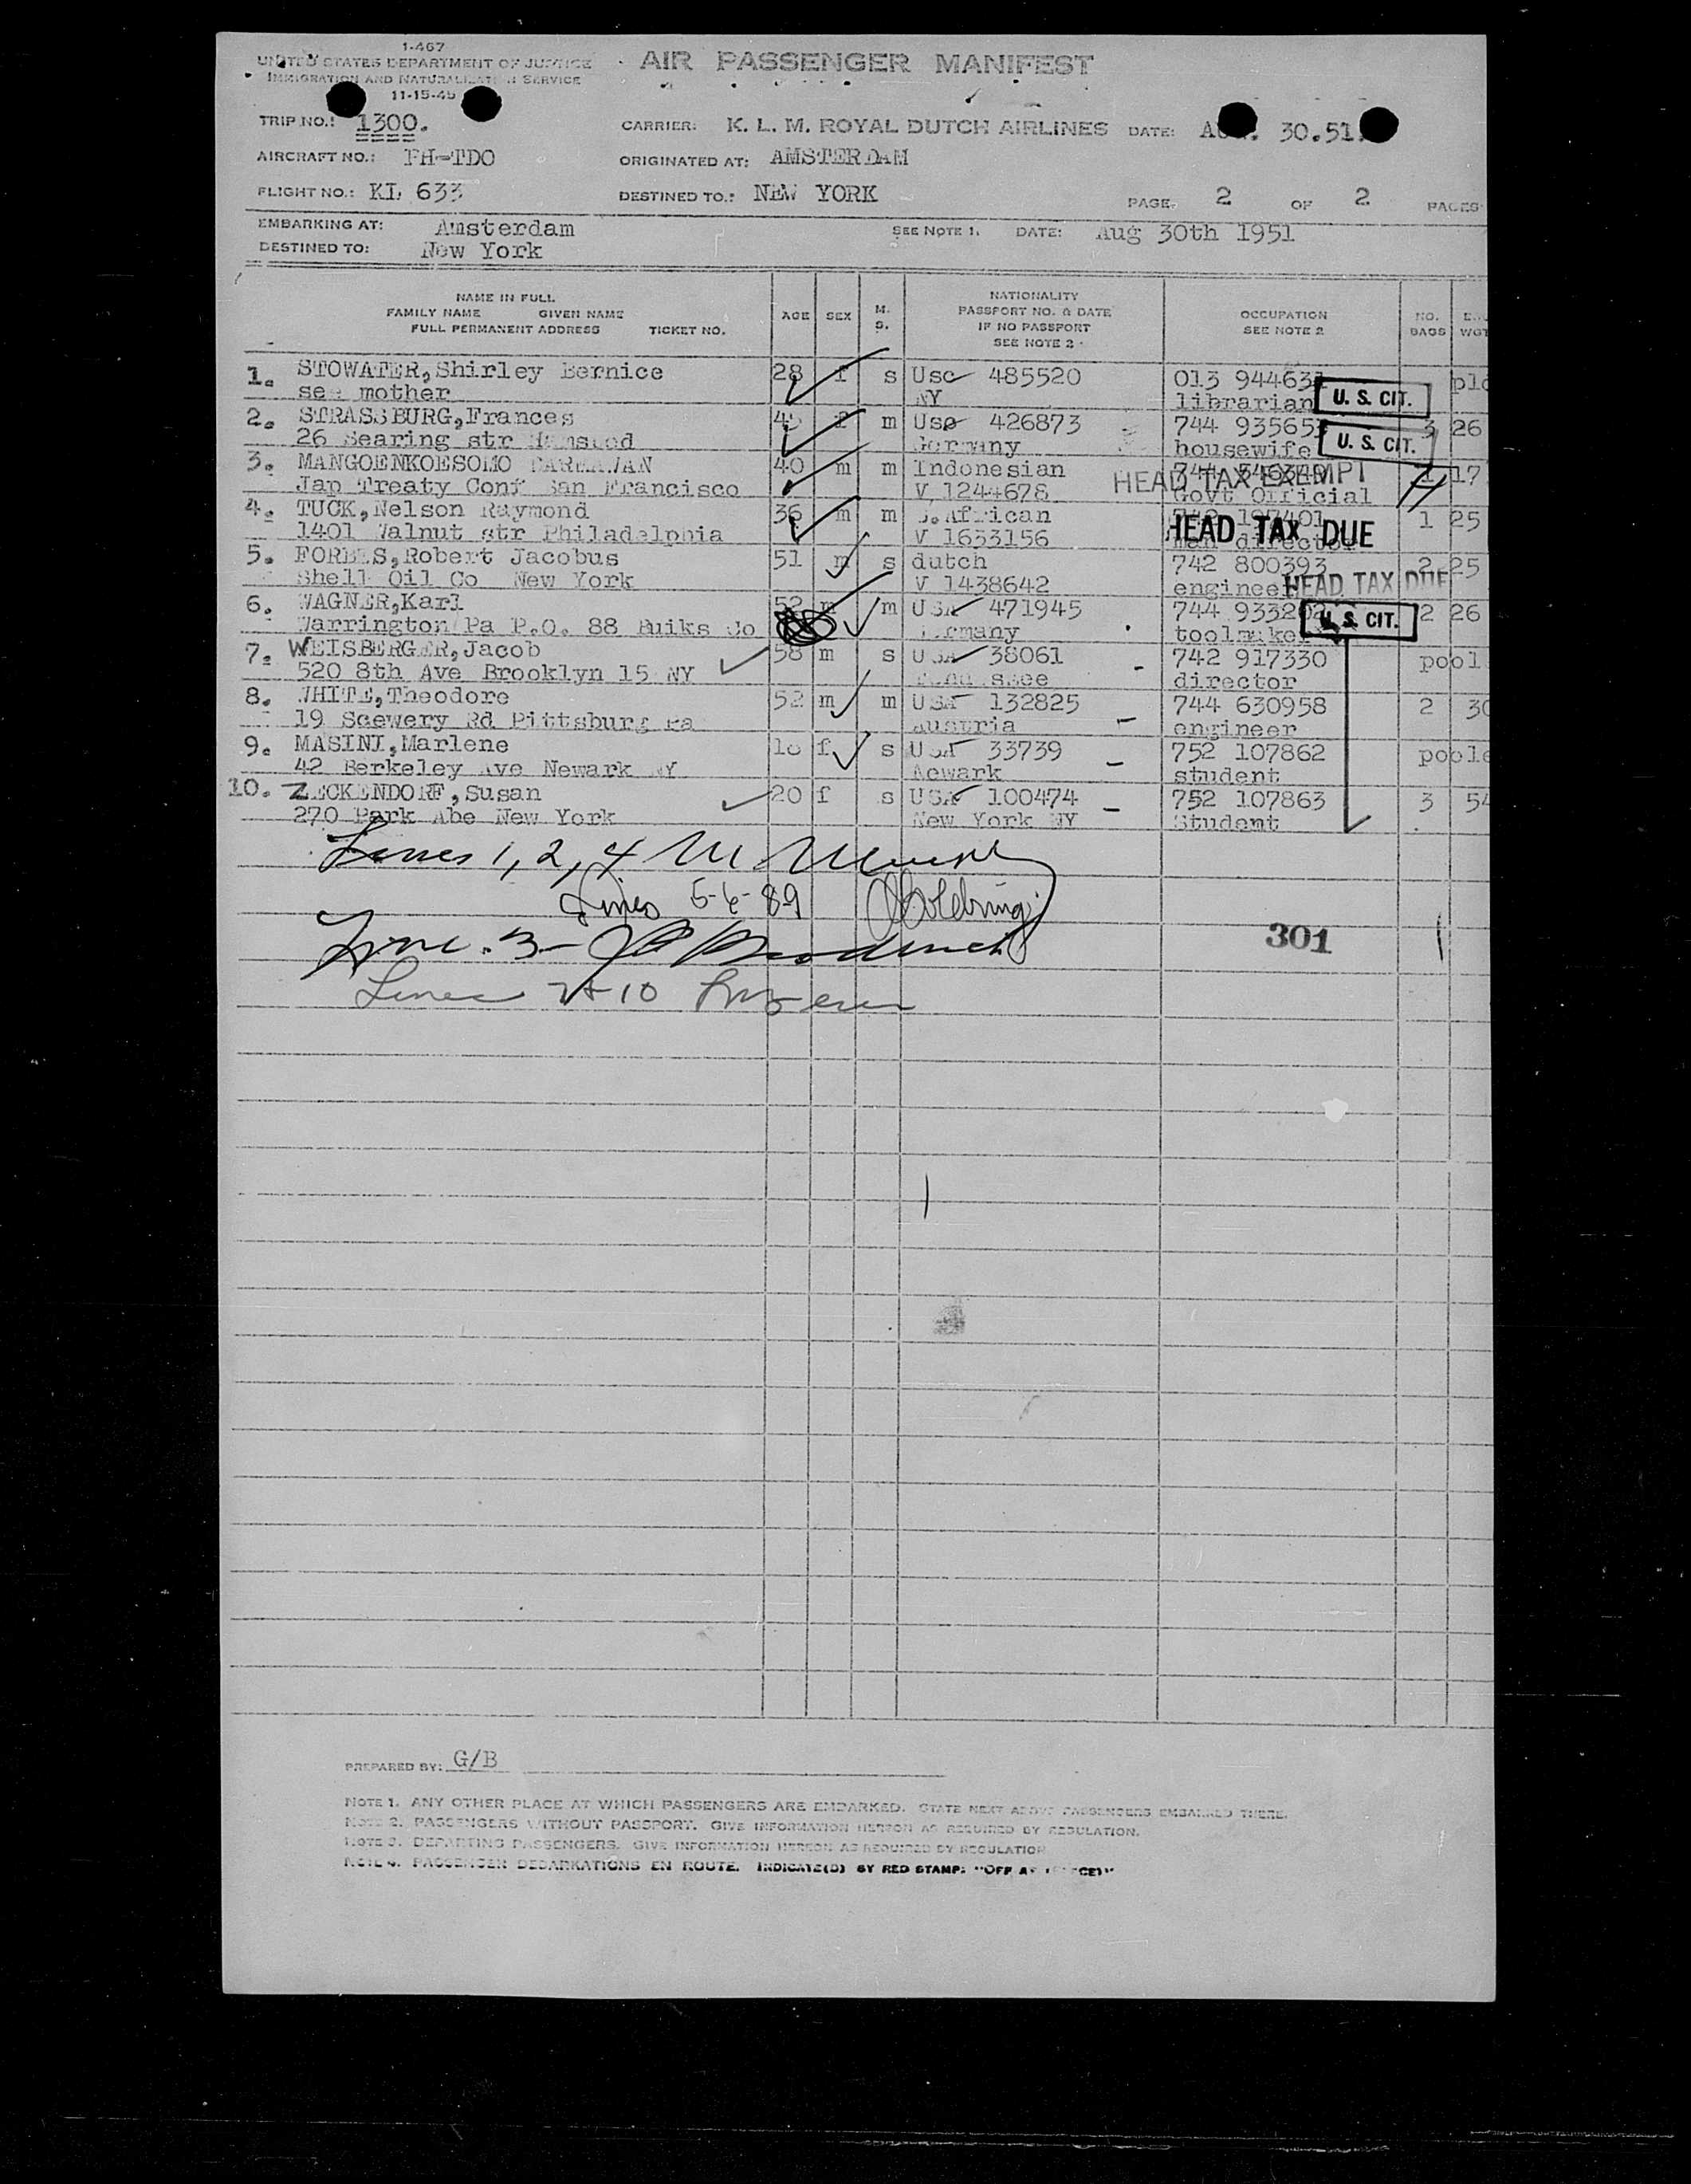 1-467
UNITED STATES DEPARTMENT OF JUSTICE
IMMIGRATION AND NATURALIZATION SERVICE
11-15-45
AIR PASSENGER MANIFEST
TRIP NO.: 1300. CARRIER: K. L. M. ROYAL DUTCH AIRLINES DATE: 30.51.
AIRCRAFT NO.: PH-TDO ORIGINATED AT: AMSTERDAM
FLIGHT NO.: KL 633 DESTINED TO.: NEW YORK PAGE. 2 OF 2 PAGES
EMBARKING AT: Amsterdam SEE NOTE 1. DATE: Aug 30th 1951
DESTINED TO: New York
NAME IN FULL
FAMILY NAME GIVEN NAME
FULL PERMANENT ADDRESS TICKET NO.
AGE SEX M. S.
NATIONALITY
PASSPORT NO. & DATE
IF NO PASSPORT
SEE NOTE 2
OCCUPATION
SEE NOTE 2
NO. BAGS WGT
1. STOWATER, Shirley Bernice 28 f s Usc 485520 013 944631
see mother NY librarian U. S. CIT.
2. STRASSBURG, Frances f m Usc 426873 744 935653 3 26
26 str Germany housewife U. S. CIT.
3. MANGOENKOESOMO 40 m m Indonesian HEAD TAX EXEMPT 17
Jap Treaty Conf San Francisco V 1244678 Govt Official
4. TUCK, Nelson Raymond 36 m m S.African 1 25
1401 Walnut str Philadelphia V 1653156 man director HEAD TAX DUE
5. FORBES, Robert Jacobus 51 m s dutch 742 800393 2 25
Shell Oil Co New York V 1438642 engineer HEAD TAX DUE
6. WAGNER, Karl 52 m m USA 471945 744 933202 2 26
Warrington Pa P.O. 88 Buiks Co Germany toolmaker U. S. CIT.
7. WEISBERGER, Jacob 58 m s USA 38061 742 917330 pool
520 8th Ave Brooklyn 15 NY director
8. WHITE, Theodore 52 m m USA 132825 744 630958 2 30
19 Scewery Rd Pittsburg Pa Austria engineer
9. MASINI, Marlene f s USA 33739 752 107862 poole
42 Berkeley Ave Newark NY Newark student
10. ZECKENDORF, Susan 20 f s USA 100474 752 107863 3 54
270 Park Abe New York New York NY Student
Lines 1, 2, 4 M
Lines 5-6-89
Line 3-
301
Lines 7 10
PREPARED BY: G/B
NOTE 1. ANY OTHER PLACE AT WHICH PASSENGERS ARE EMBARKED. STATE NEXT ABOVE PASSENGERS EMBARKED THERE.
NOTE 2. PASSENGERS WITHOUT PASSPORT. GIVE INFORMATION HEREON AS REQUIRED BY REGULATION.
NOTE 3. DEPARTING PASSENGERS. GIVE INFORMATION HEREON AS REQUIRED BY REGULATION
NOTE 4. PASSENGER DEBARKATIONS EN ROUTE. INDICATE(D) BY RED STAMP: "OFF AT